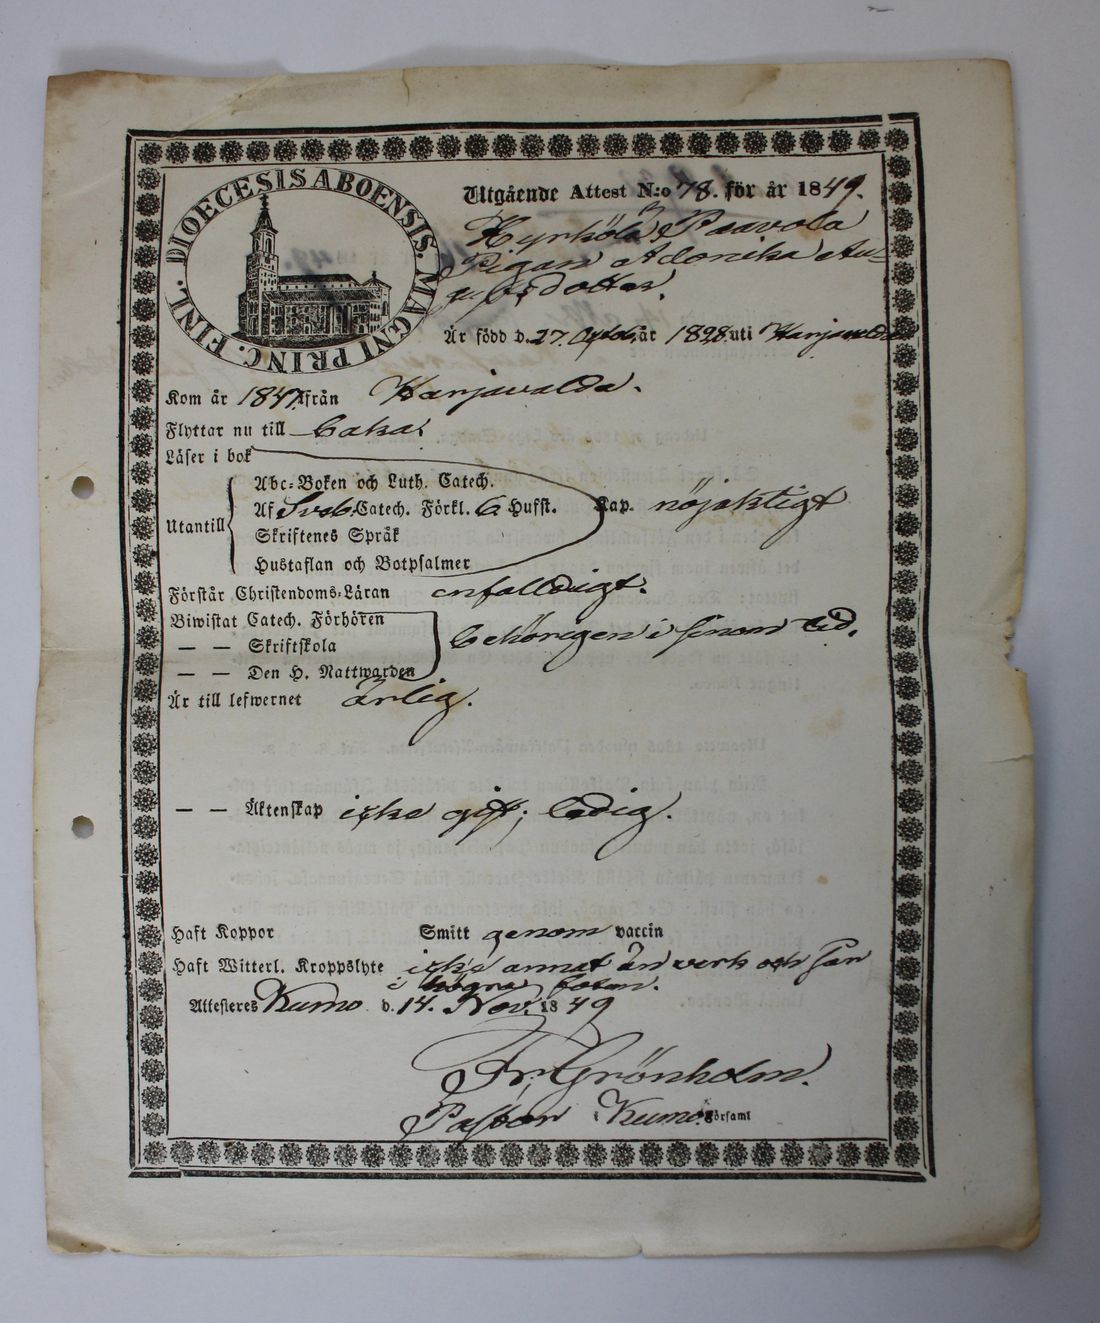 DIOECESIS ABOENSIS. MAGNI PRINC. FINL.
Utgående Attest N:o 78. för år 1849.
Kyrkölä, Paavola
Pigan Adonika An-
dotter.
Är född d. 27. år 1828. uti Harjavalda
Kom år 1847. ifrån Harjavalda.
Flyttar nu till
Läser i bok
Utantill
Abc-Boken och Luth. Catech.
Af Sveb. Catech. Förkl. 6 Hufst.
Skriftenes Språk
Hustaflan och Botpsalmer
Kap. nöjaktigt
Förstår Christendoms-Läran enfalldigt.
Biwistat Catech. Förhören
— — Skriftskola
— — Den H. Nattwarden
behörigen i sinom tid.
Är till lefwernet ärlig.
— — Äktenskap icke gift, ledig.
Haft Koppor Smitt genom vaccin
Haft Witterl. Kroppslyte icke annat än verk och
i högra foten.
Attesteres Kumo d. 14. Nov. 1849
Fr. Grönholm.
Pastor i Kumo Församl